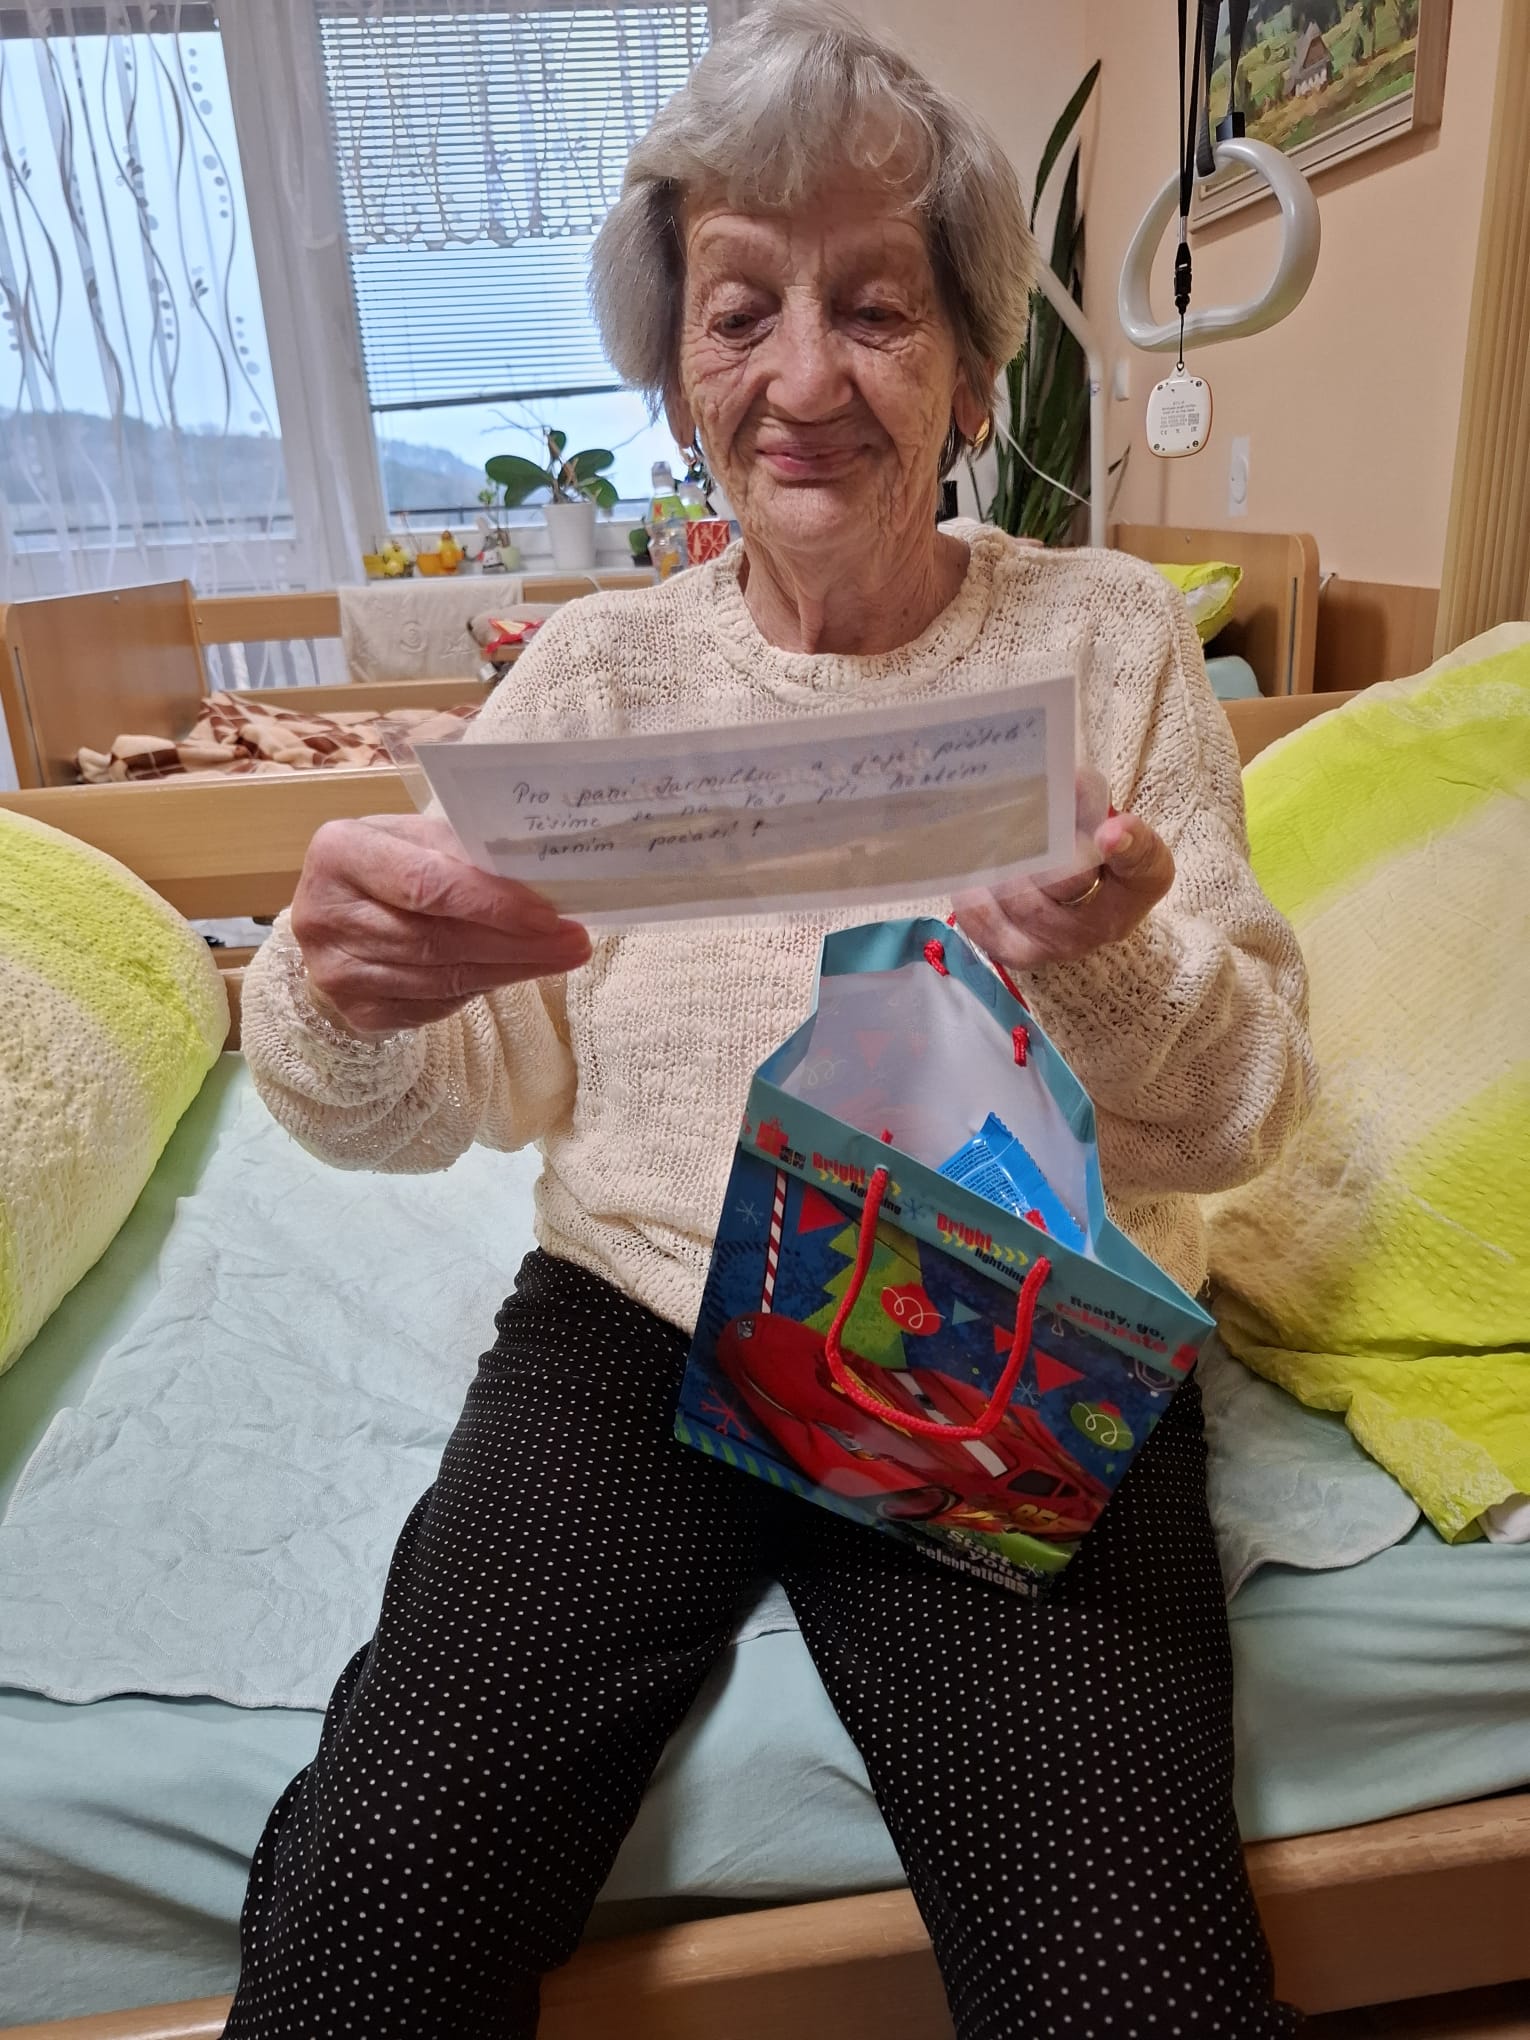 Pro paní Jarmilku a její přátele!
Těšíme se na Vás při hezkém
jarním počasí!
Bright
lightning
Bright
lightning
Ready, go,
celebrate
95
Start
your
celebrations!